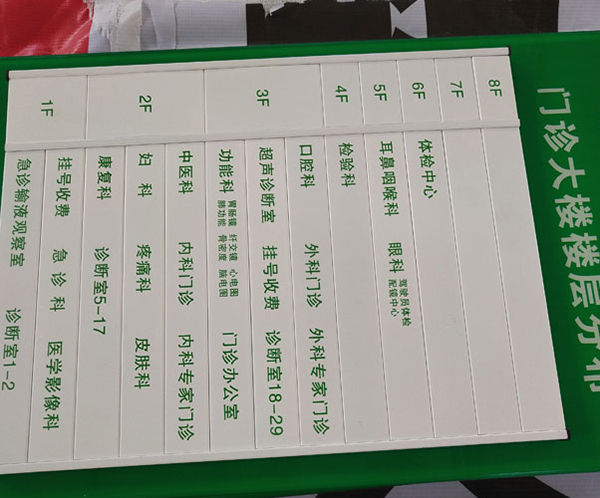 门诊大楼楼层分布
8F
7F
6F 体检中心
5F 耳鼻咽喉科 眼科 驾驶员体检 配镜中心
4F 检验科
3F 口腔科 外科门诊 外科专家门诊
超声诊断室 挂号收费 诊断室18-29
功能科 胃肠镜 纤支镜 心电图 肺功能 骨密度 脑电图 门诊办公室
2F 中医科 内科门诊 内科专家门诊
妇科 疼痛科 皮肤科
康复科 诊断室5-17
1F 挂号收费 急诊科 医学影像科
急诊输液观察室 诊断室1-2